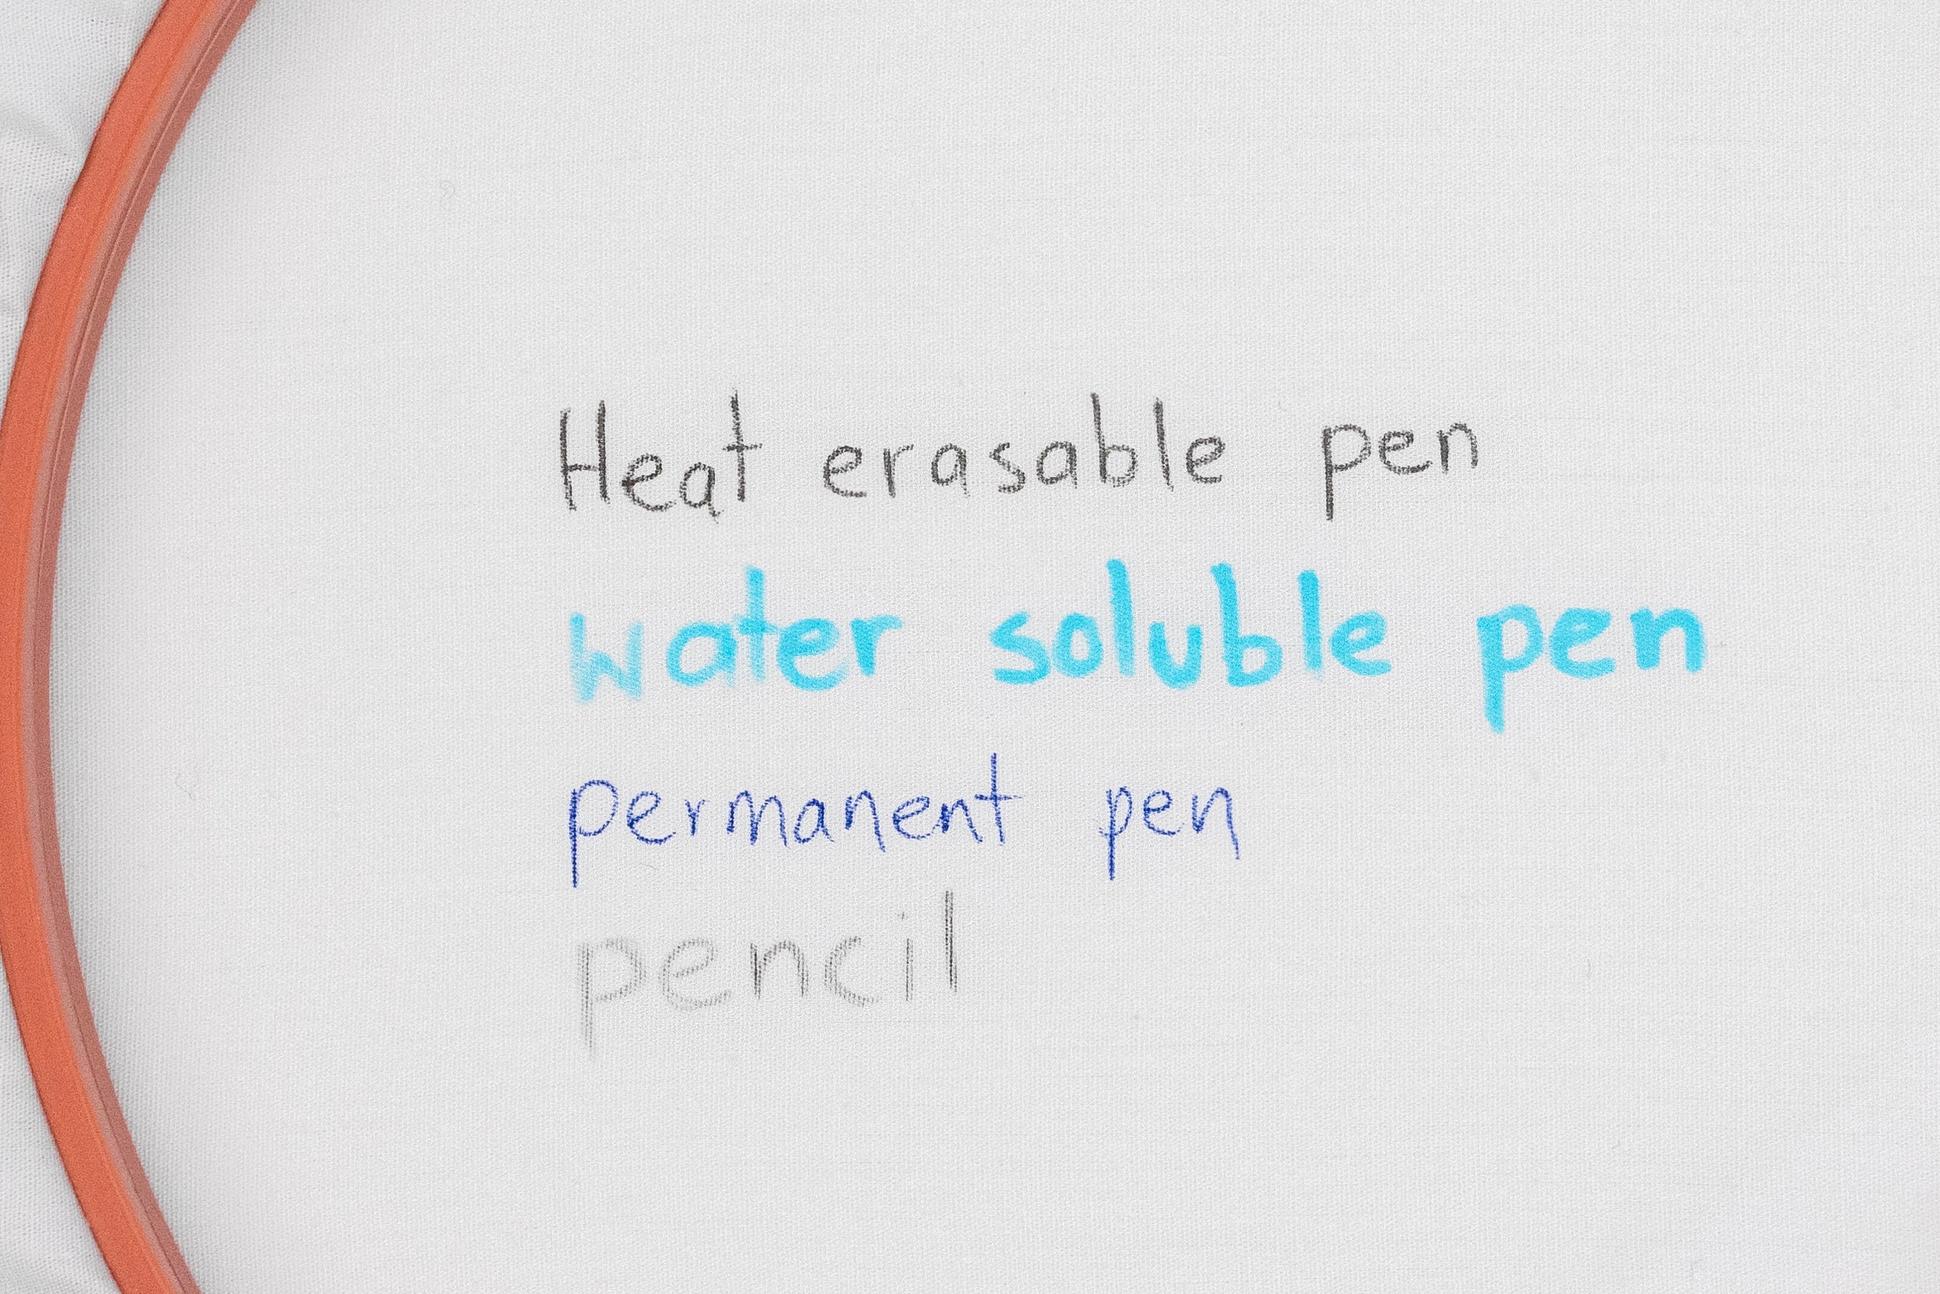 Heat erasable pen
water soluble pen
permanent pen
pencil